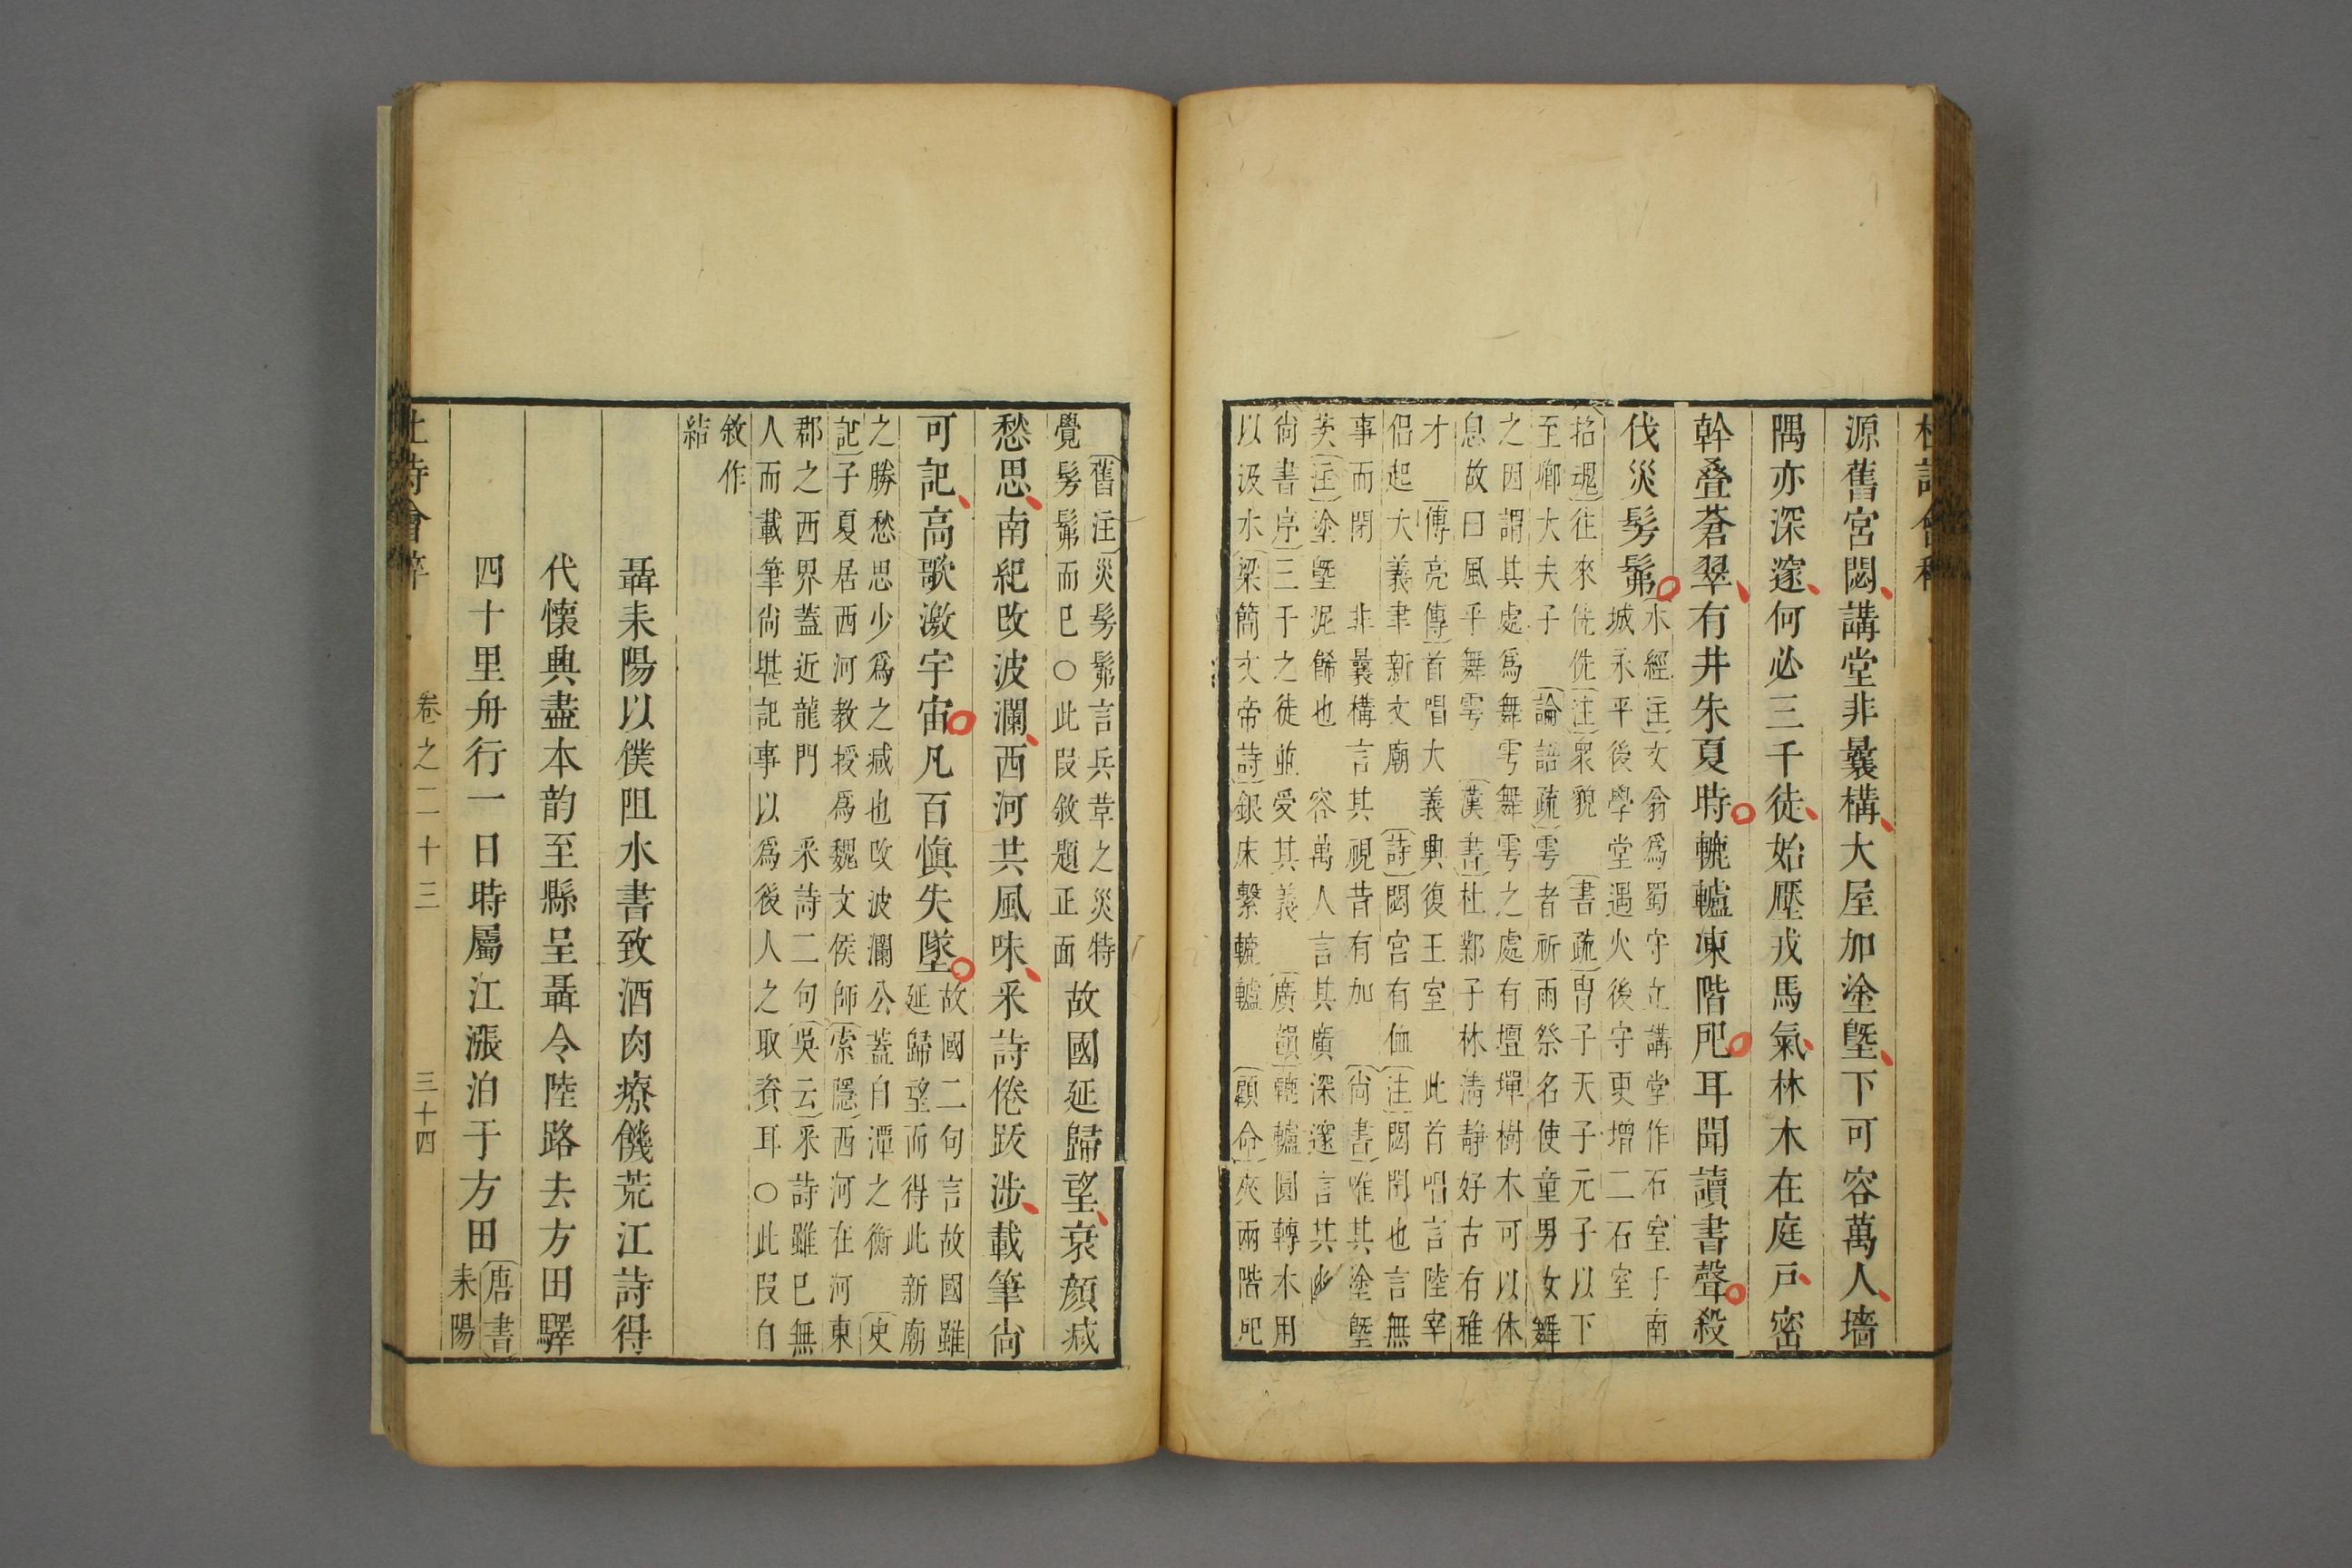 源舊宮閟講堂非曩構大屋加塗墍下可容萬人墻
隅亦深邃何必三千徒始壓戎馬氣林木在庭戶密
幹叠蒼翠有井朱夏時轆轤凍階戺耳聞讀書聲殺
伐災髣髴
水經注文翁爲蜀守立講堂作石室于南
城永平後學堂遇火後守更增二石室
招魂往來侁侁注衆貌　書疏冑子天子元子以下
至卿大夫子　論語疏雩者祈雨祭名使童男女舞
之因謂其處爲舞雩舞雩之處有壇墠樹木可以休
息故曰風乎舞雩　漢書杜鄴子林淸靜好古有雅
才　傅亮傳首唱大義興復王室　此首唱言陸宰
侶起大義聿新文廟　詩閟宮有侐　注閟閉也言無
事而閉　非曩構言其視昔有加　尚書唯其塗墍
茨注塗墍泥餙也　容萬人言其廣深邃言其幽
尚書序三千之徒並受其義　廣韻轆轤圓轉木用
以汲水梁簡文帝詩銀床繫轆轤　顧命夾兩階戺
舊注災髣髴言兵革之災特
覺髣髴而巳○此段敘題正面
故國延歸望衰顏减
愁思南紀改波瀾西河共風味釆詩倦跋涉載筆尚
可記高歌激宇宙凡百愼失墜
故國二句言故國雖
延歸望而得此新廟
之勝愁思少爲之减也改波瀾公蓋自潭之衡　史
記子夏居西河教授爲魏文侯師索隱西河在河東
郡之西界蓋近龍門　釆詩二句吳云釆詩雖巳無
人而載筆尚堪記事以爲後人之取資耳○此段自
敘作
結
聶耒陽以僕阻水書致酒肉療饑荒江詩得
代懷興盡本韵至縣呈聶令陸路去方田驛
四十里舟行一日時屬江漲泊于方田
唐書
耒陽
杜詩會稡
卷之二十三
三十四